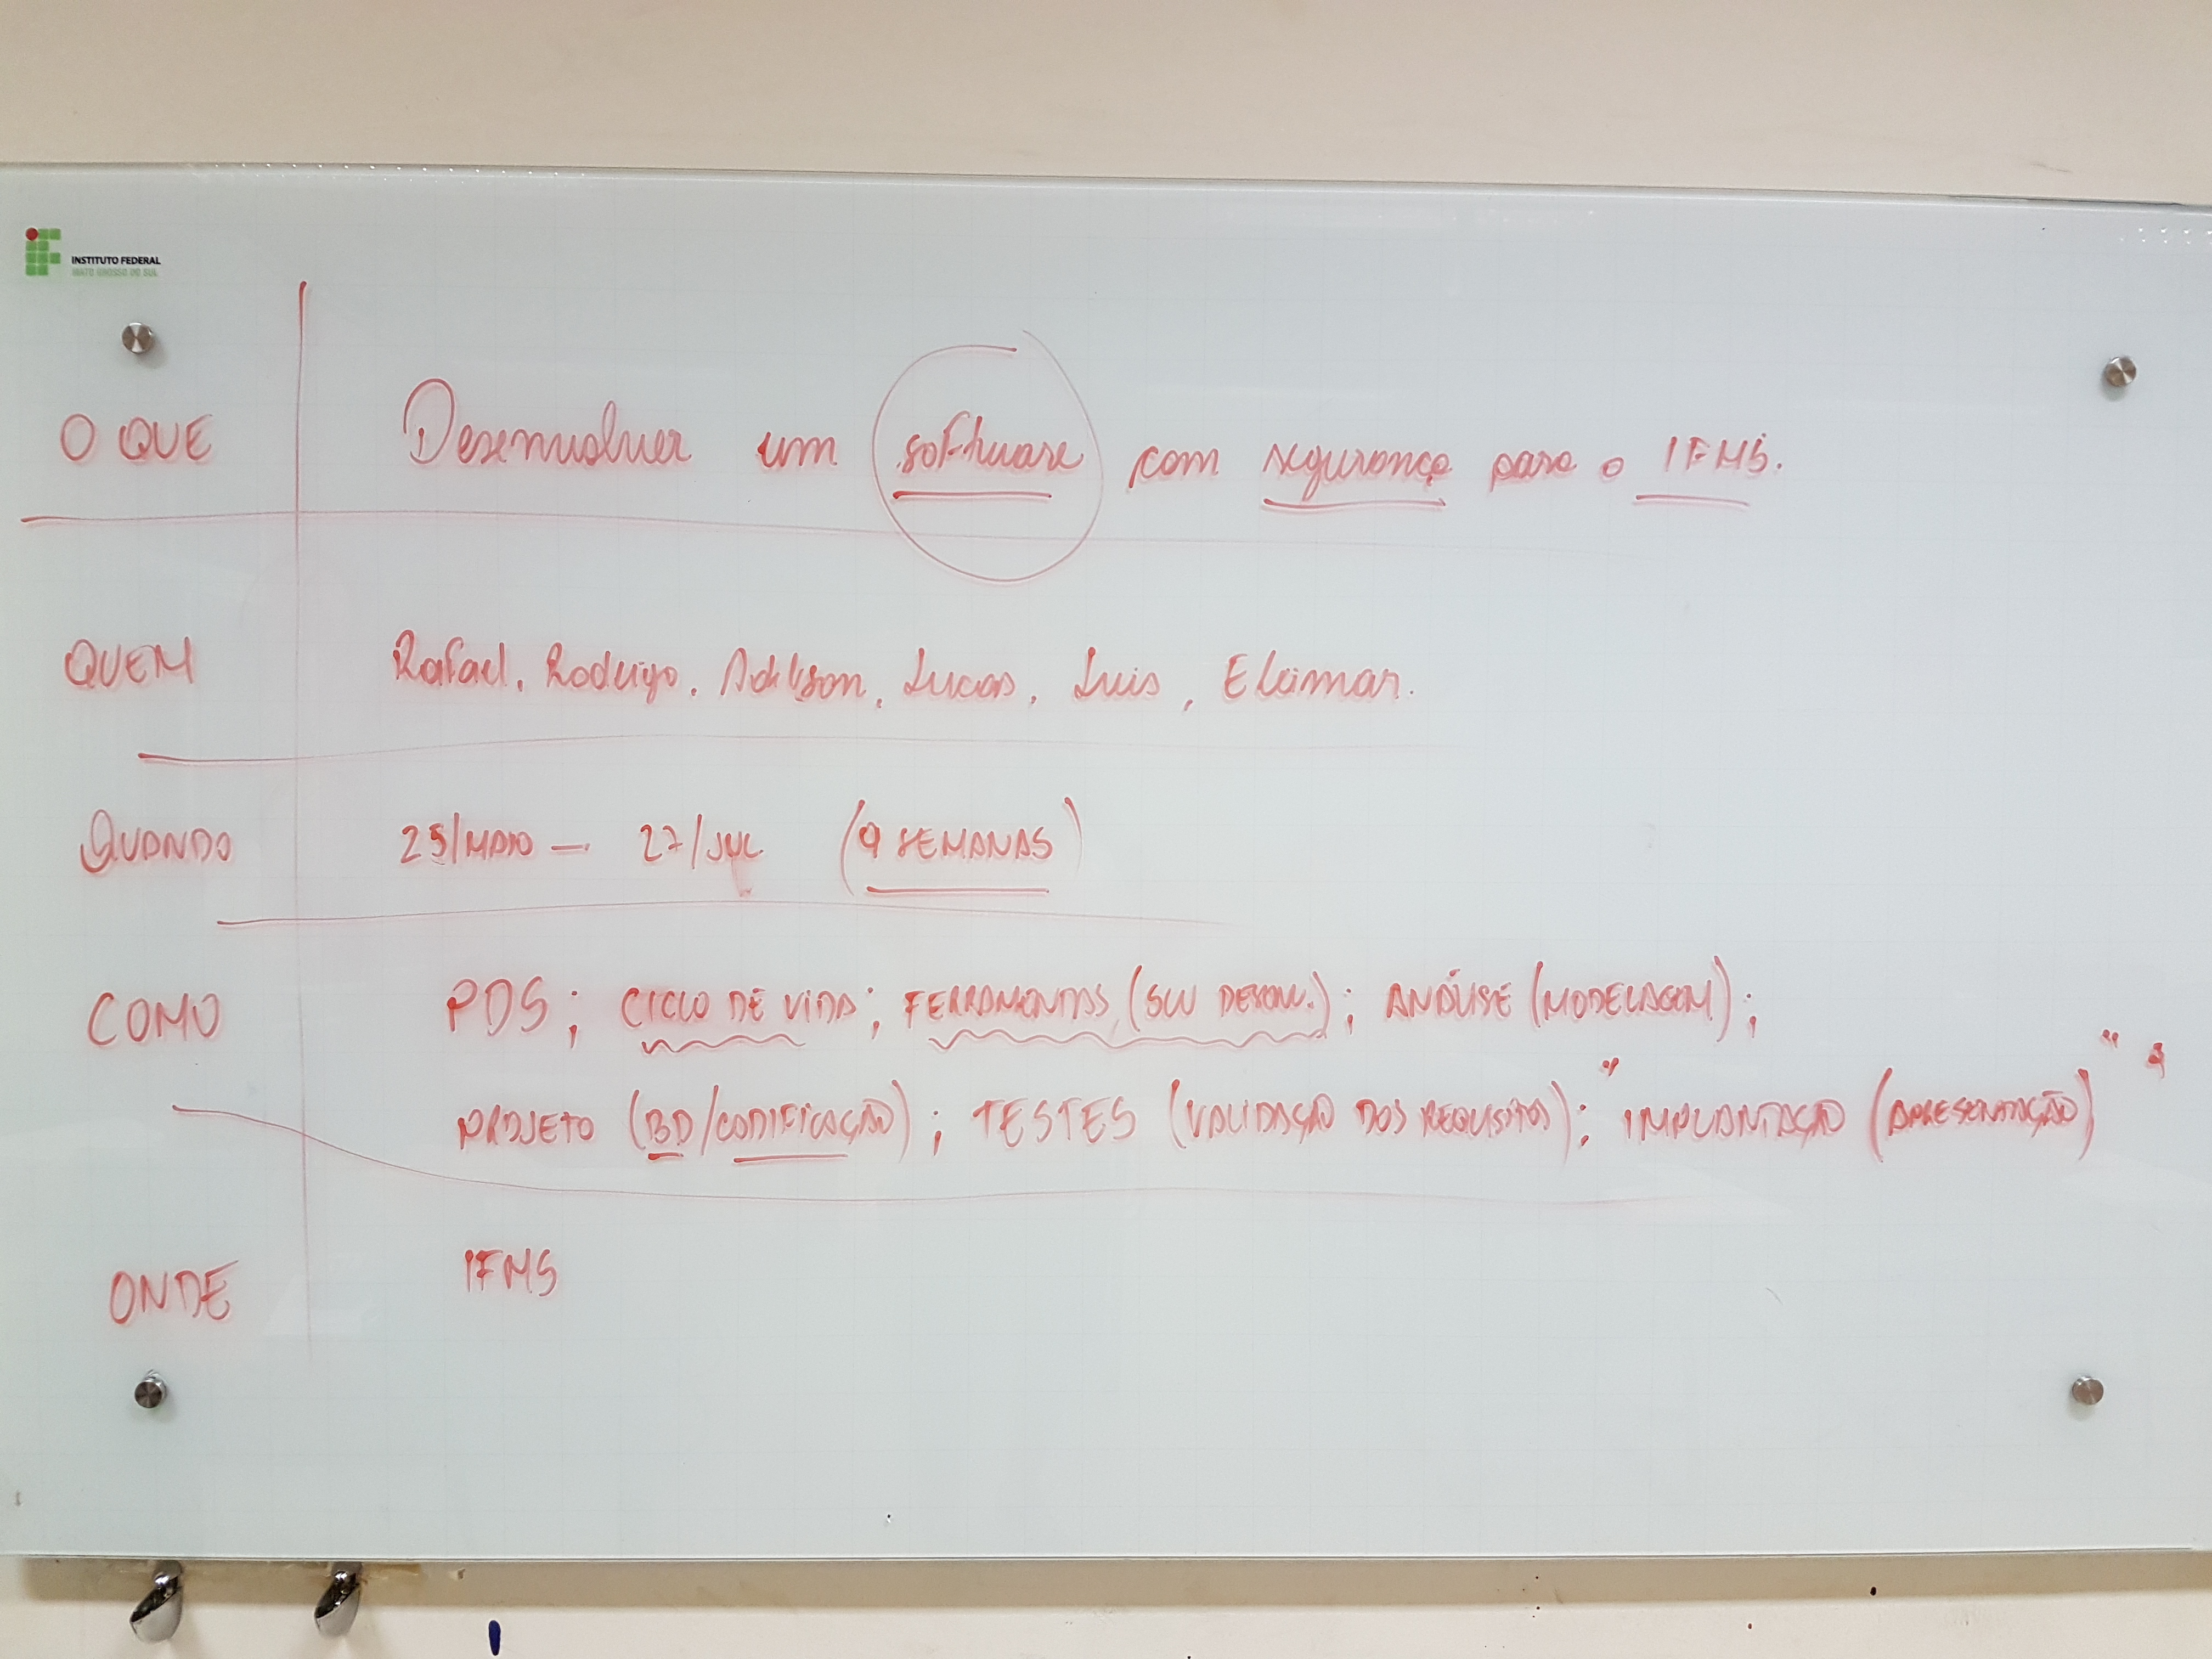 INSTITUTO FEDERAL
MATO GROSSO DO SUL
O QUE Desenvolver um software com segurança para o IFMS.
QUEM Rafael, Rodrigo, Adilson, Lucas, Luis, Elaimar.
QUANDO 25/MAIO - 27/JUL (9 SEMANAS)
COMO PDS; CICLO DE VIDA; FERRAMENTAS (SW DESENV.); ANÁLISE (MODELAGEM);
PROJETO (BD/CODIFICAÇÃO); TESTES (VALIDAÇÃO DOS REQUISITOS); "IMPLANTAÇÃO (APRESENTAÇÃO)"
ONDE IFMS